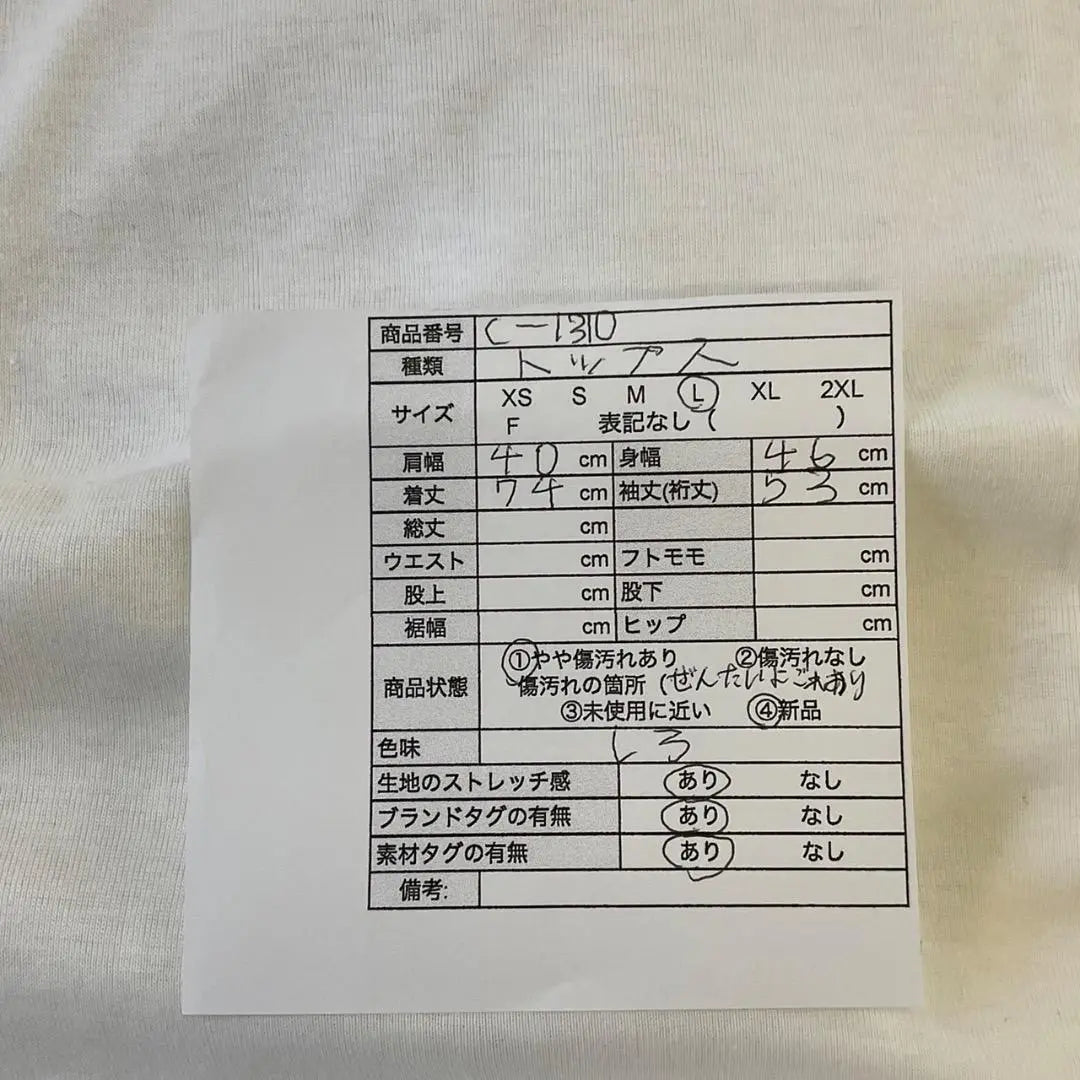 商品番号 C-1310
種類 トップス
サイズ XS S M L XL 2XL
F 表記なし ( )
肩幅 40 cm 身幅 46 cm
着丈 74 cm 袖丈(裄丈) 53 cm
総丈 cm
ウエスト cm フトモモ cm
股上 cm 股下 cm
裾幅 cm ヒップ cm
商品状態 ①やや傷汚れあり ②傷汚れなし
傷汚れの箇所 (ぜんたいよごれあり
③未使用に近い ④新品
色味 しろ
生地のストレッチ感 あり なし
ブランドタグの有無 あり なし
素材タグの有無 あり なし
備考: